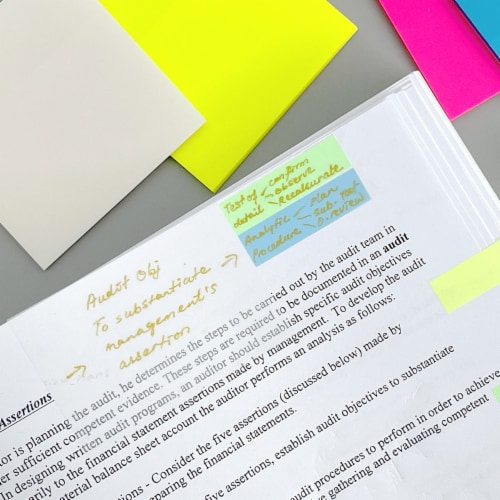 Test of - confirm
detail - observe
Recalcurate
Analytic - plan
Procedure - sub. test
o. review
Audit Obj
To substantiate
management's
assertion
Assertions
or is planning the audit, he determines the steps to be carried out by the audit team in
er sufficient competent evidence. These steps are required to be documented in an audit
In designing written audit programs, an auditor should establish specific audit objectives
arily to the financial statement assertions made by management. To develop the audit
aterial balance sheet account the auditor performs an analysis as follows:
tions - Consider the five assertions (discussed below) made by
eparing the financial statements.
five assertions, establish audit objectives to substantiate
audit procedures to perform in order to achieve
e gathering and evaluating competent